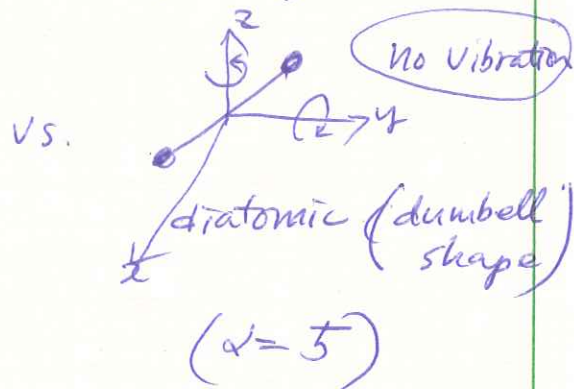 z
no vibration
vs.
y
diatomic (dumbell
shape)
x
(α = 5)